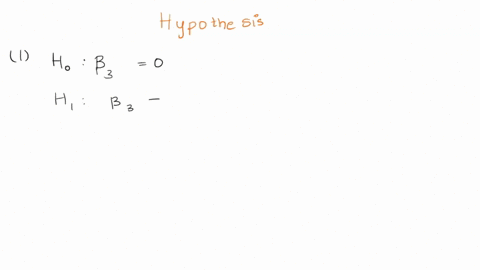 Hypothesis
(1) H₀ : β₃ = 0
H₁ : β₃ –